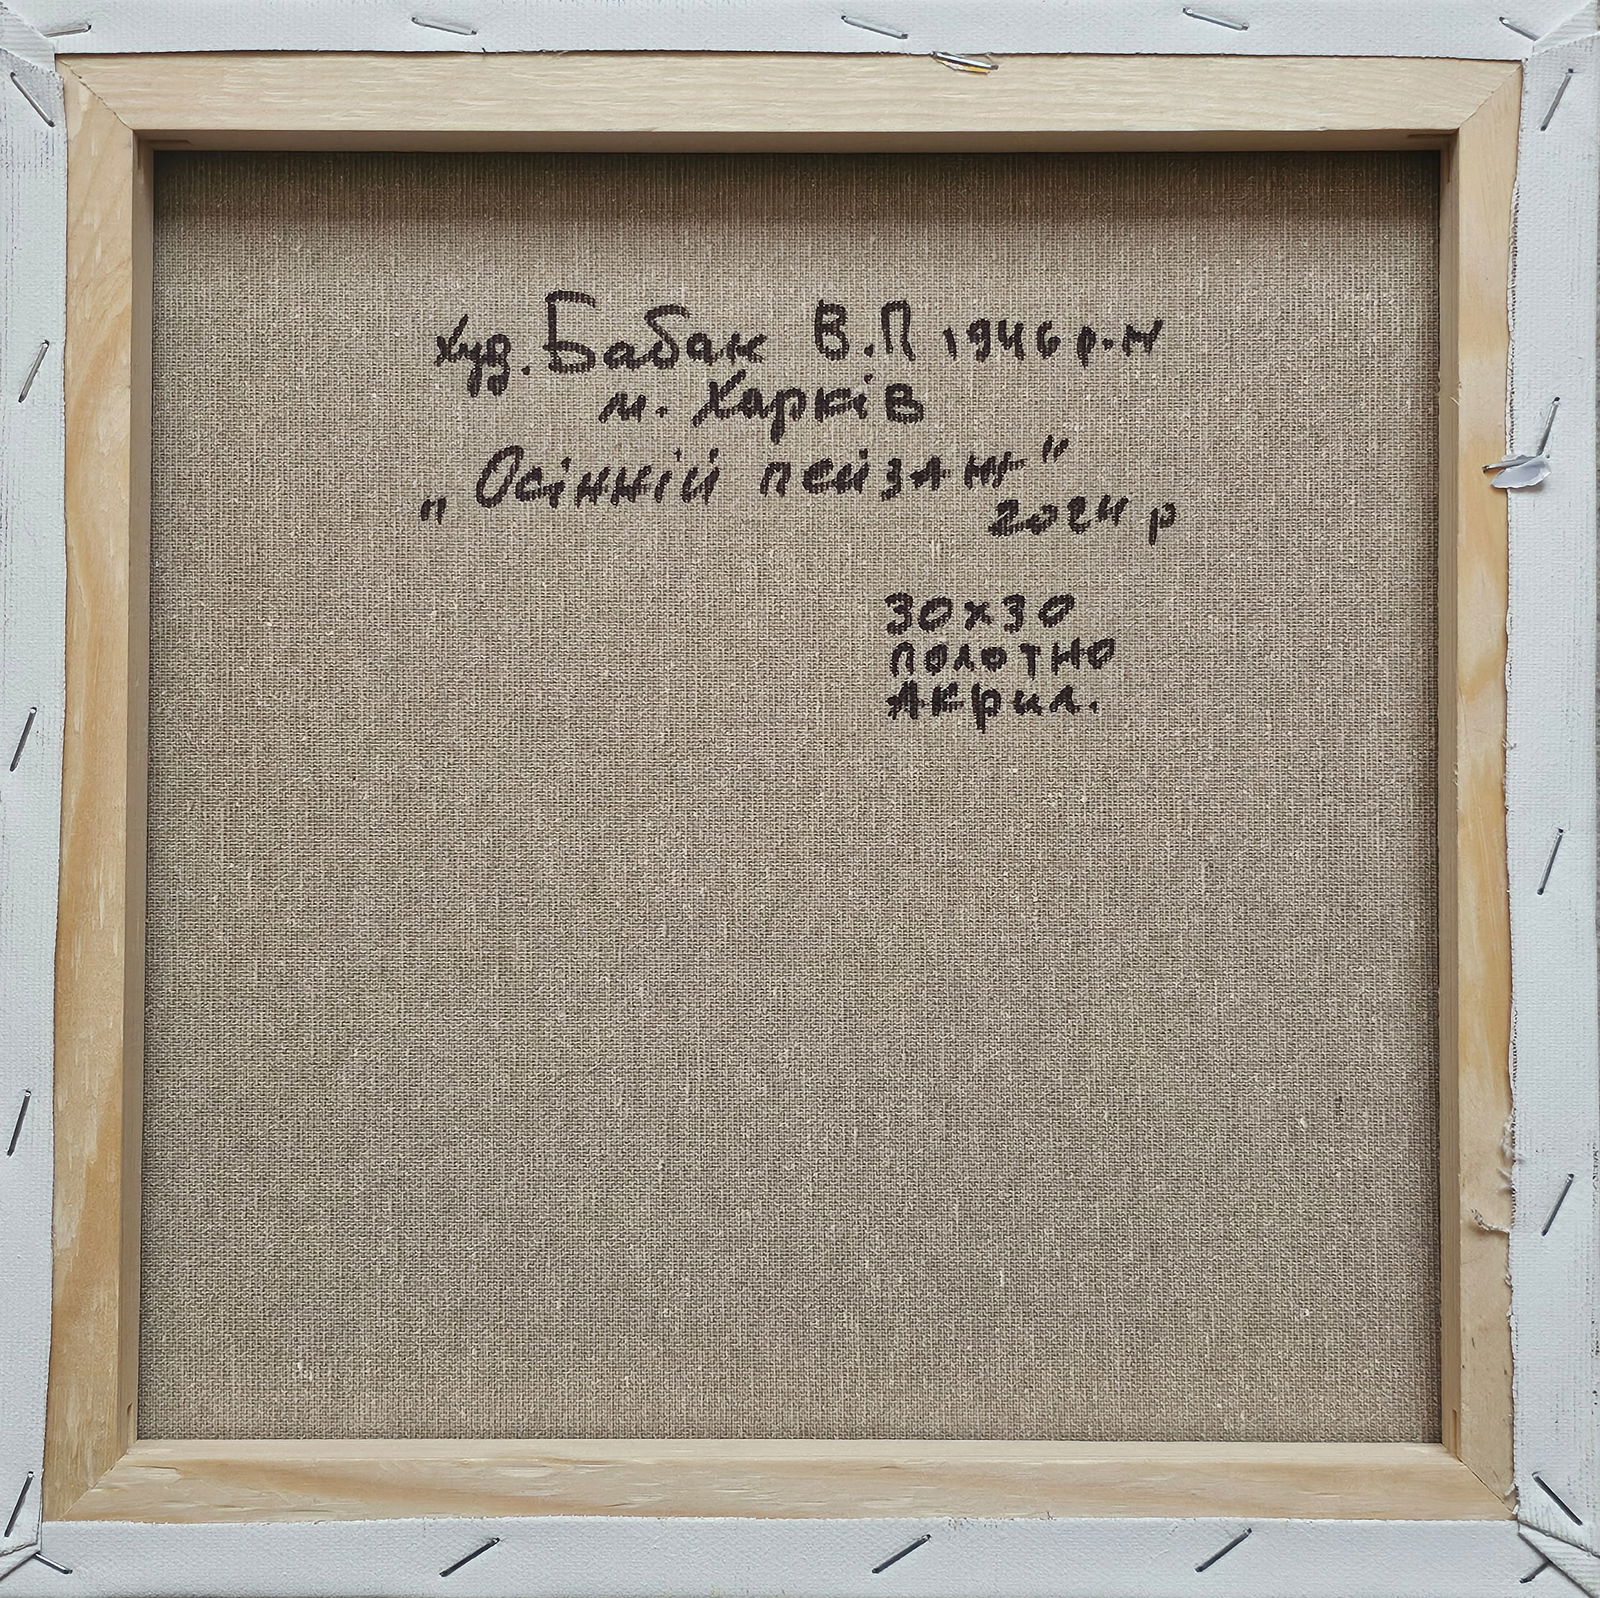 худ. Бабак В.П 1946 р.н
м. Харків
„Осінній пейзаж"
2024 р
30х30
полотно
Акрил.